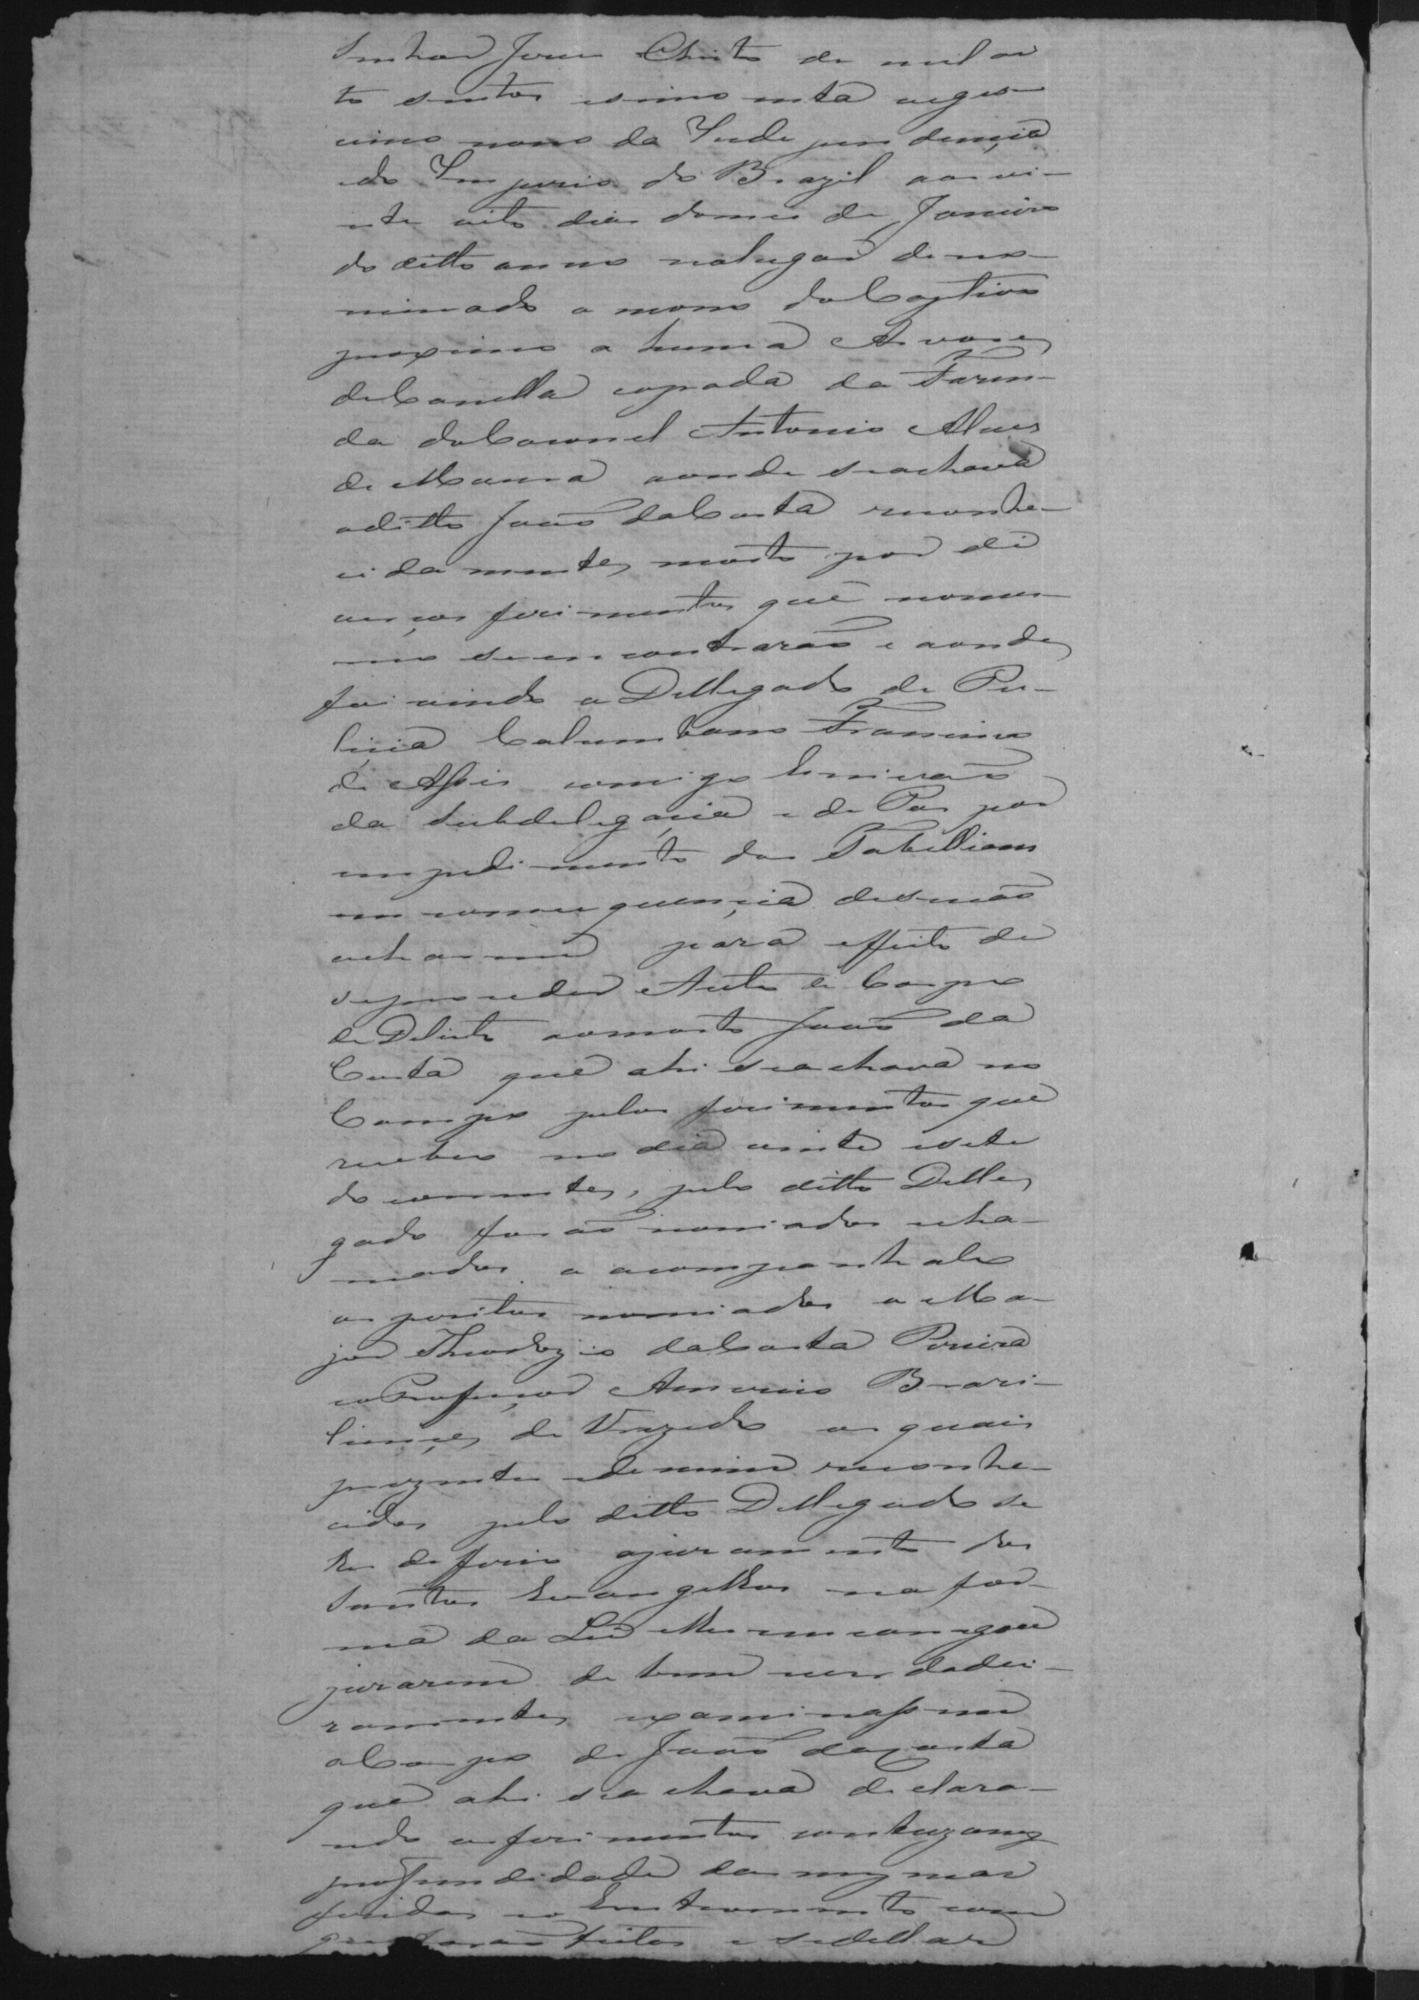 Senhor Jesus Christo de mil oi
to sentos e sincoenta viges-
cimo nono da Inde pen dencia
edo Imperio do Brazil aos vi-
nte oito dias domes de Janeiro
do ditto anno nolugar deno-
minado o morro do Captivo
proximo a huma Arvore
deCanella copada da Fazen-
da doCoronel Antonio Alves
de Moura aonde seachava
oditto João daCosta reconhe-
cida mente morto por di
verços feri mentos que nomes-
mo se en contrarão e aonde
foi vindo o Dellegado de Pu-
licia Columbano Francisco
de Assis comigo Escrivão
da Subdelegacia e de Paz por
impedi mento dos Tabelliaens
em consequencia de se não
acharem para effeito de
se proceder Auto de Corpo
de Delicto aomorto João da
Costa que ahi seachava no
Campo pelos ferimentos que
recebeo no dia vinte esete
do corrente, pelo ditto Delle
gado forão nomiados echa-
mados a acompanhalo
os peritos nomiados o Ma-
jor Theodozio daCosta Pereira
eoProfeçor Americo Brazi-
liençe de Azevedo os quais
prezentes edemim reconhe-
cidos pelo ditto Dellegado se
lhe deferio ojuramento dos
Santos Evangelhos na for-
ma da Lei elhes encarregou
jurarem de bem verdadei-
ramente examinassem
oCorpo de João daCosta
que ahi sea chava declara-
ndo os feri mentos
profundidade das mesmas
feridas eo Enstromento com
que forão feitas e sedellas